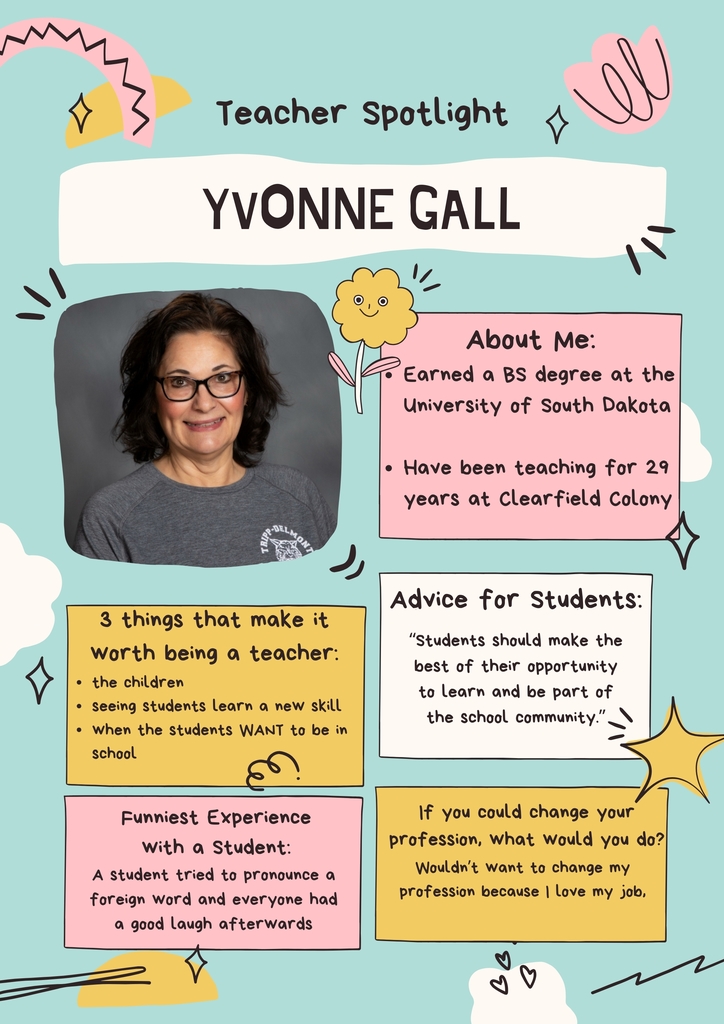 Teacher Spotlight
YVONNE GALL
TRIPP-DELMONT
About Me:
• Earned a BS degree at the
University of South Dakota
• Have been teaching for 29
years at Clearfield Colony
3 things that make it
worth being a teacher:
• the children
• seeing students learn a new skill
• when the students WANT to be in
school
Advice for Students:
"Students should make the
best of their opportunity
to learn and be part of
the school community."
Funniest Experience
with a Student:
A student tried to pronounce a
foreign word and everyone had
a good laugh afterwards
If you could change your
profession, what would you do?
Wouldn't want to change my
profession because I love my job,